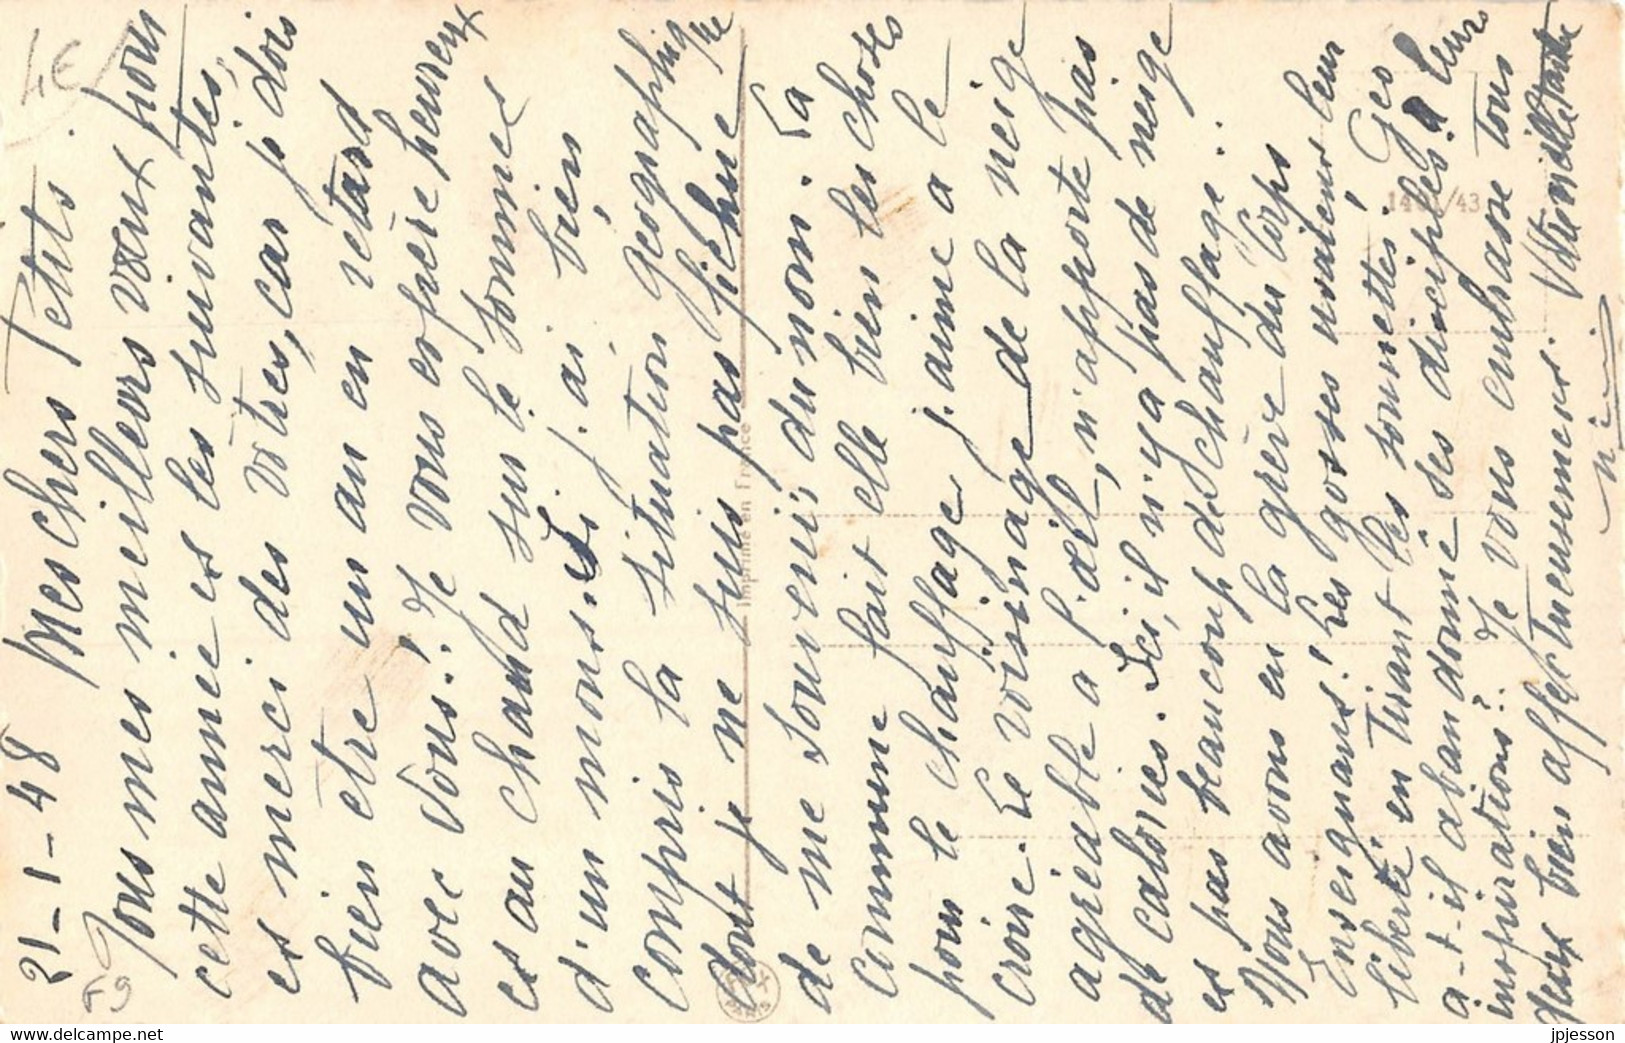 21-1-48 Mes Chers Petits.
Tous mes meilleurs vœux pour
cette année et les suivantes,
et merci des vôtres, car je dois
bien être un an en retard
avec vous! Je vous espère heureux
et au chaud sur le sommet
d'un mons. J'ai bien
compris la situation géographique
dont je ne suis pas fichue
de me souvenir, du nom. La
Commune fait elle bien les choses
pour le chauffage j'aime à le
croire. Le voisinage de la neige
agréable à l'œil, n'apporte pas
de calories. Ici, il n'y a pas de neige
et pas beaucoup de chauffage.
Nous avons eu la grève du Corps
Enseignant! Les gosses usaient leur
liberté en tirant les sonnettes! Geo
a-t-il abandonné ses disciples à leurs
inspirations? Je vous embrasse tous
deux bien affectueusement.
4€
59
Imprimé en France
PARIS
1401/43
jpjesson